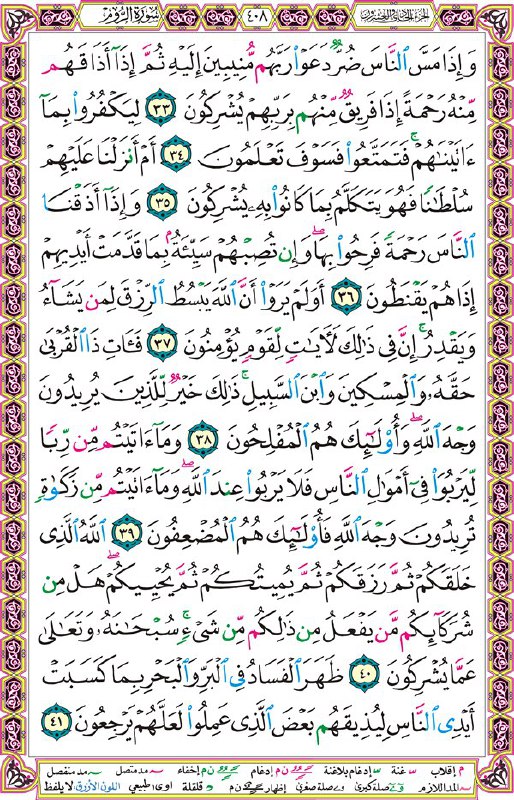 سُورَةُ الرُّومِ ٤٠٨ الجزء الحادي والعشرون
وَإِذَا مَسَّ ٱلنَّاسَ ضُرٌّ دَعَوْا۟ رَبَّهُم مُّنِيبِينَ إِلَيْهِ ثُمَّ إِذَآ أَذَاقَهُم
مِّنْهُ رَحْمَةً إِذَا فَرِيقٌ مِّنْهُم بِرَبِّهِمْ يُشْرِكُونَ ٣٣ لِيَكْفُرُوا۟ بِمَآ
ءَاتَيْنَٰهُمْ ۚ فَتَمَتَّعُوا۟ فَسَوْفَ تَعْلَمُونَ ٣٤ أَمْ أَنزَلْنَا عَلَيْهِمْ
سُلْطَٰنًا فَهُوَ يَتَكَلَّمُ بِمَا كَانُوا۟ بِهِۦ يُشْرِكُونَ ٣٥ وَإِذَآ أَذَقْنَا
ٱلنَّاسَ رَحْمَةً فَرِحُوا۟ بِهَا ۖ وَإِن تُصِبْهُمْ سَيِّئَةٌۢ بِمَا قَدَّمَتْ أَيْدِيهِمْ
إِذَا هُمْ يَقْنَطُونَ ٣٦ أَوَلَمْ يَرَوْا۟ أَنَّ ٱللَّهَ يَبْسُطُ ٱلرِّزْقَ لِمَن يَشَآءُ
وَيَقْدِرُ ۚ إِنَّ فِى ذَٰلِكَ لَءَايَٰتٍ لِّقَوْمٍ يُؤْمِنُونَ ٣٧ فَـَٔاتِ ذَا ٱلْقُرْبَىٰ
حَقَّهُۥ وَٱلْمِسْكِينَ وَٱبْنَ ٱلسَّبِيلِ ۚ ذَٰلِكَ خَيْرٌ لِّلَّذِينَ يُرِيدُونَ
وَجْهَ ٱللَّهِ ۖ وَأُو۟لَٰٓئِكَ هُمُ ٱلْمُفْلِحُونَ ٣٨ وَمَآ ءَاتَيْتُم مِّن رِّبًا
لِّيَرْبُوَا۟ فِىٓ أَمْوَٰلِ ٱلنَّاسِ فَلَا يَرْبُوا۟ عِندَ ٱللَّهِ ۖ وَمَآ ءَاتَيْتُم مِّن زَكَوٰةٍ
تُرِيدُونَ وَجْهَ ٱللَّهِ فَأُو۟لَٰٓئِكَ هُمُ ٱلْمُضْعِفُونَ ٣٩ ٱللَّهُ ٱلَّذِى
خَلَقَكُمْ ثُمَّ رَزَقَكُمْ ثُمَّ يُمِيتُكُمْ ثُمَّ يُحْيِيكُمْ ۖ هَلْ مِن
شُرَكَآئِكُم مَّن يَفْعَلُ مِن ذَٰلِكُم مِّن شَىْءٍ ۚ سُبْحَٰنَهُۥ وَتَعَٰلَىٰ
عَمَّا يُشْرِكُونَ ٤٠ ظَهَرَ ٱلْفَسَادُ فِى ٱلْبَرِّ وَٱلْبَحْرِ بِمَا كَسَبَتْ
أَيْدِى ٱلنَّاسِ لِيُذِيقَهُم بَعْضَ ٱلَّذِى عَمِلُوا۟ لَعَلَّهُمْ يَرْجِعُونَ ٤١
م إقلاب ـّ غنة إدغام بلاغنة ن م إدغام ن م إخفاء مد متصل مد منفصل
المد اللازم صلة كبرى وصلة صغرى إظهار ن م قلقلة اوى طبيعي اللون الأزرق لا يلفظ